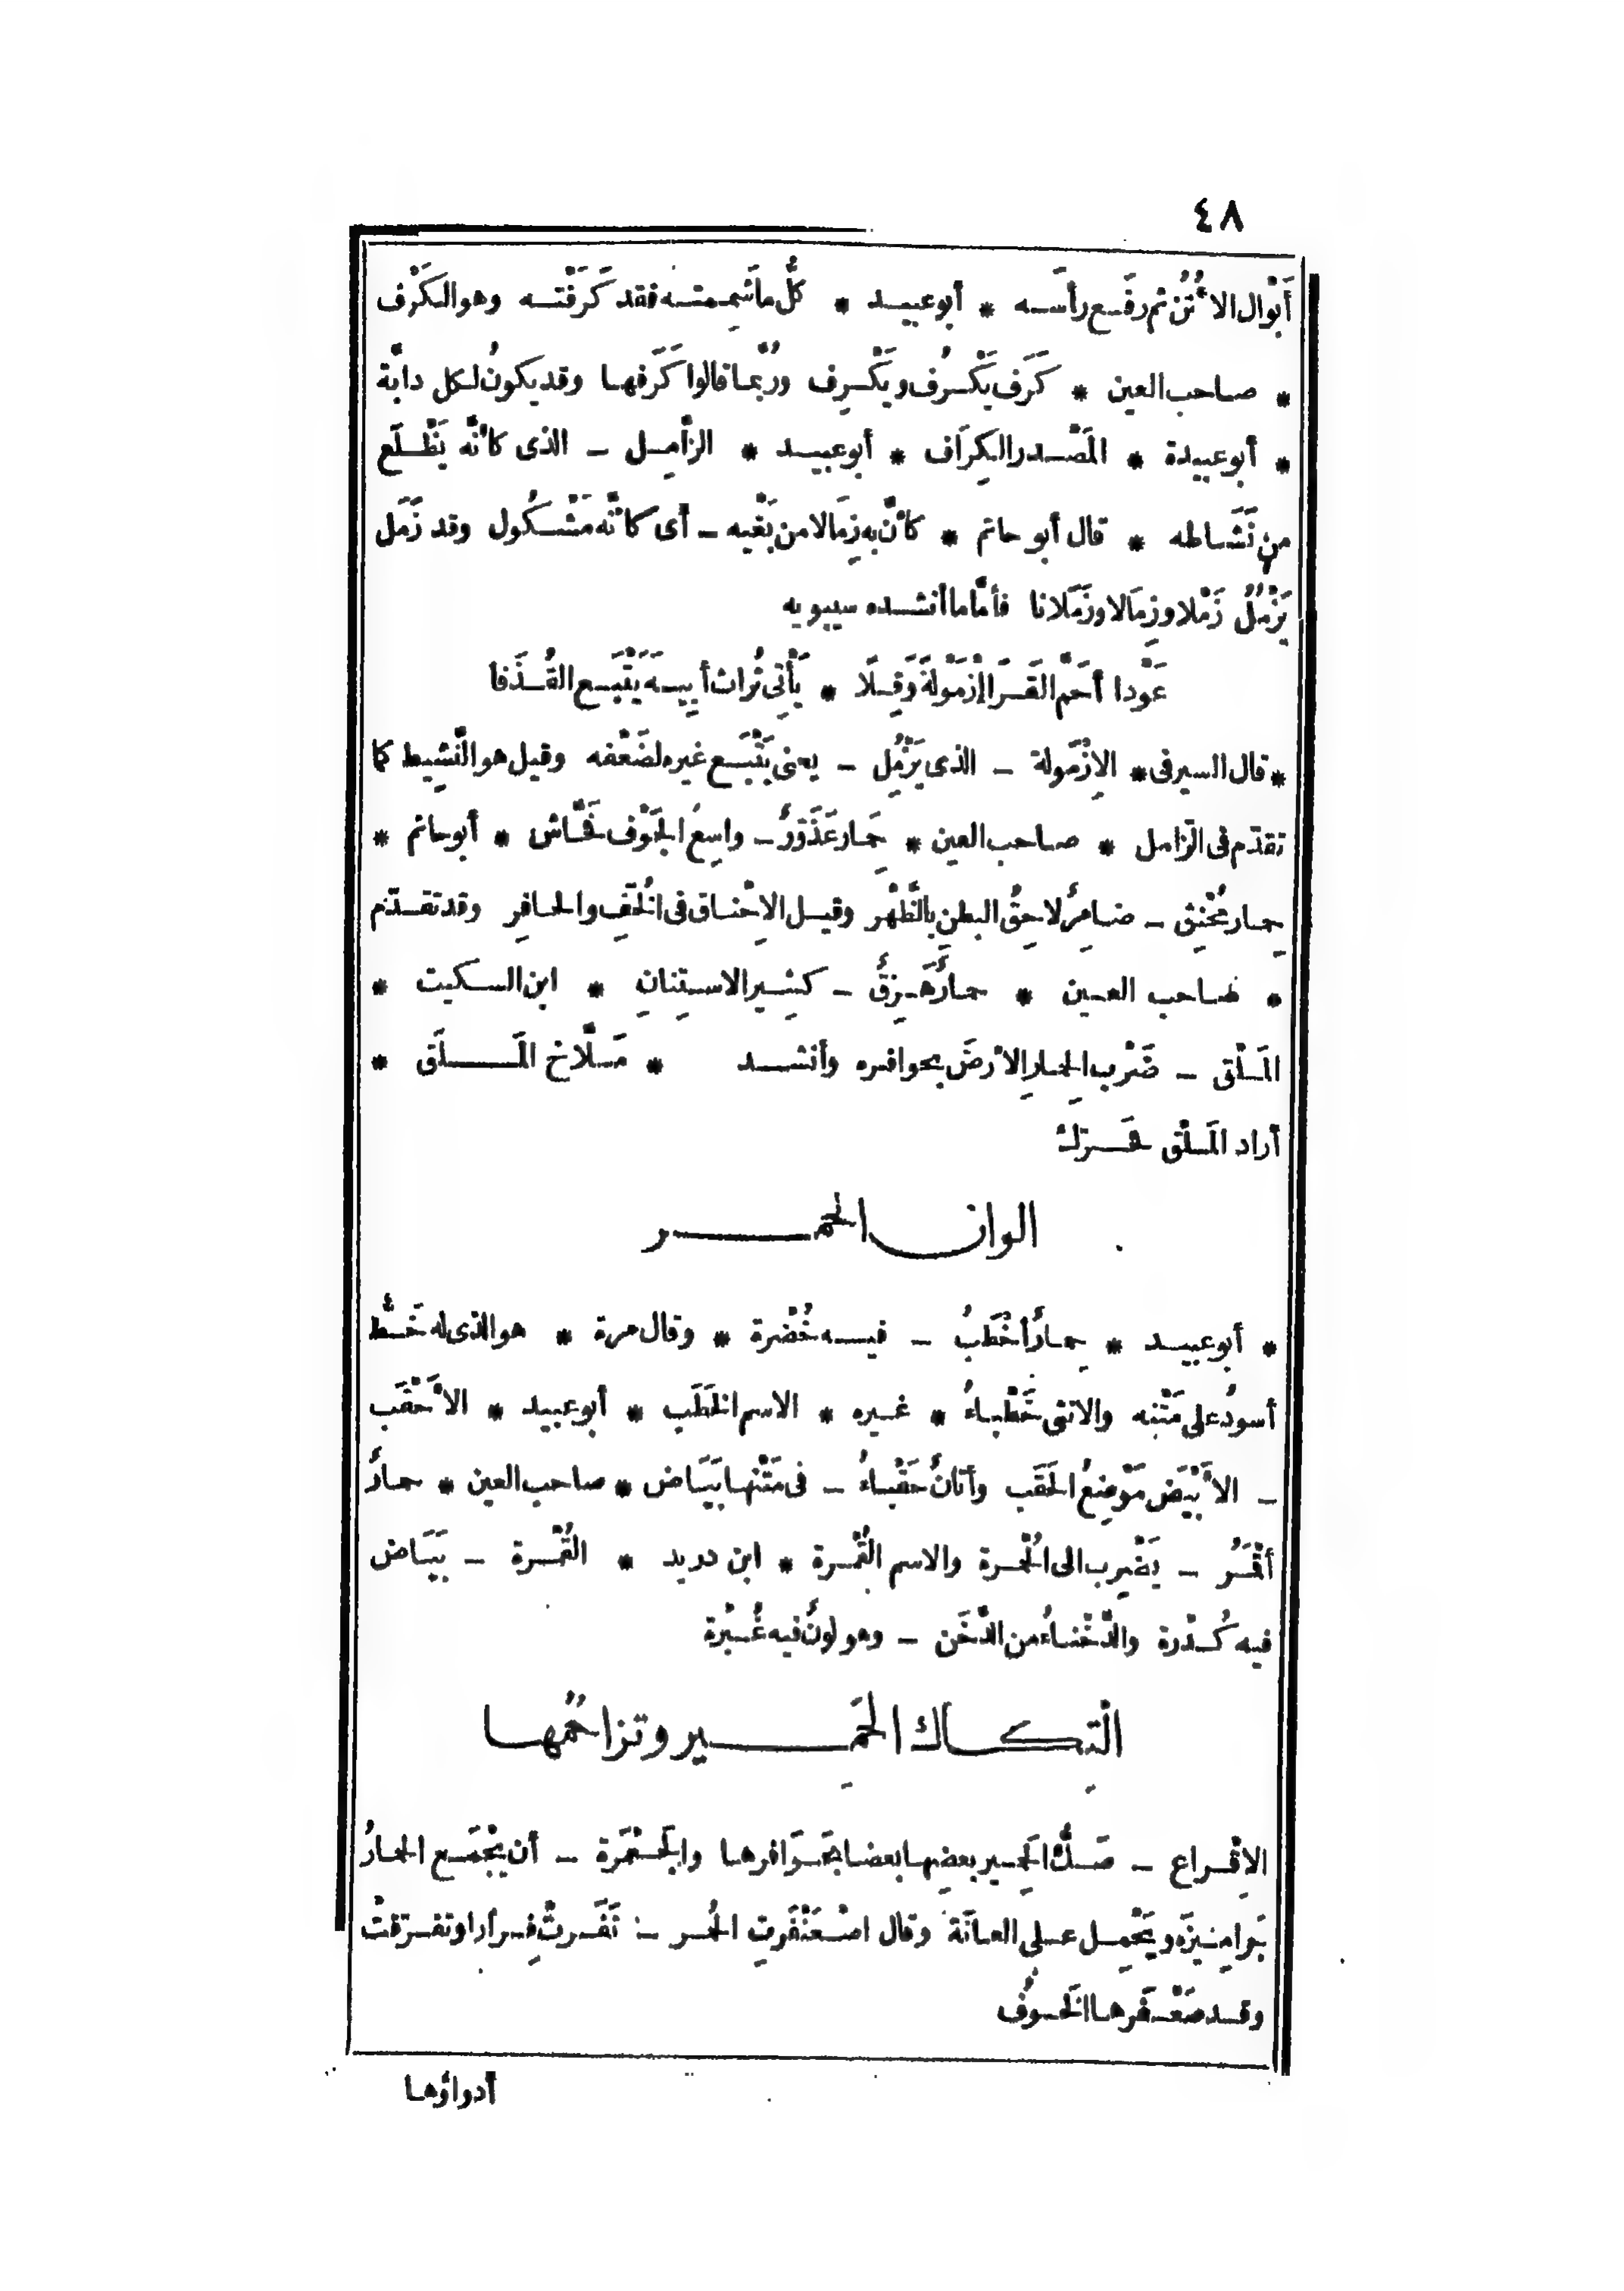 ٤٨
أَبْوال الأُتُن ثم رفَع رأسَه * أبو عبيد * كلُّ ما شَمِمته فقد كَرَفْته وهو الكَرْف
* صاحب العين * كَرَف يَكْرُف ويَكْرِف ورُبَّما قالوا كَرَفها وقد يكونُ لكل دابَّة
* أبو عبيدة * المَصْدر الكِرَاف * أبو عبيد * الزَّامِل – الذى كأنَّه يَظْلَع
من نَشَاطه * قال أبو حاتم * كأنَّ به زِمَالا من بَغْيه – أى كأنَّه مَشْكُول وقد زَمَل
يَزْمُلُ زَمْلا وزِمَالا وزَمَلانا فأمَّا ما أنشده سيبويه
عَوْدا أحَمَّ القَرَا إزْمَوْلةً وَقِلًا * يَأْتِى تُراث أَبِيهِ يَتْبَع القُذَفا
* قال السيرفى * الإزْمَولة – الذى يَزْمُل – يعنى يَتْبَع غيره لضَعْفه وقيل هو النَّشِيط كما
تقدّم فى الزَّامل * صاحب العين * حِمَار عَذَوَّرٌ – واسِعُ الجَوْف فَحَّاش * أبو حاتم *
حِمار مُحْنِق – ضامِرٌ لاحِقُ البطن بالظَّهْر وقيل الاِحْناق فى الخُفِّ والحافِر وقد تقدّم
* صاحب العين * حمارٌ هَزِقٌ – كَثِير الاستِنانِ * ابن السكيت *
المَلْق – ضَرْب الحِمارِ الأرضَ بحوافره وأنشد * مَلَّاخ المَلَق *
أراد المَلْق فحَرّك
الوان الحمر
* أبو عبيد * حِمارٌ أخْطَبُ – فيه خُضْرة * وقال مرة * هو الذى له خَطٌّ
أسودُ على مَتْنه والانثى خَطْباءُ * غيره * الاسم الخَطَب * أبو عبيد * الأحْقَب
– الأبْيَض مَوْضِعُ الحَقَب وأتانٌ حَقْباءُ – فى مَتْنها بَيَاض * صاحب العين * حمارٌ
أقْمَرُ – يَضْرِب الى الحُمْرة والاسم القُمْرة * ابن دريد * القُمْرة – بَيَاض
فيه كُدْرة والدَّخْناءُ من الدَّخَن – وهو لونٌ فيه غُبْرة
الْتِكاك الحَمِير وتزاحُمُها
الاِقْراع – صَكُّ الحَمِير بعضِها بعضا بحَوَافرها والجَحْمَرة – أن يَجْمَع الحمارُ
جَرامِيزَه ويَحْمِل على العانَة وقال اصْعَنْفَرتِ الحُمر – نَفَرتْ فِرارا وتفرّقتْ
وقد صَعْفَرها الخَوفُ
أدواؤها